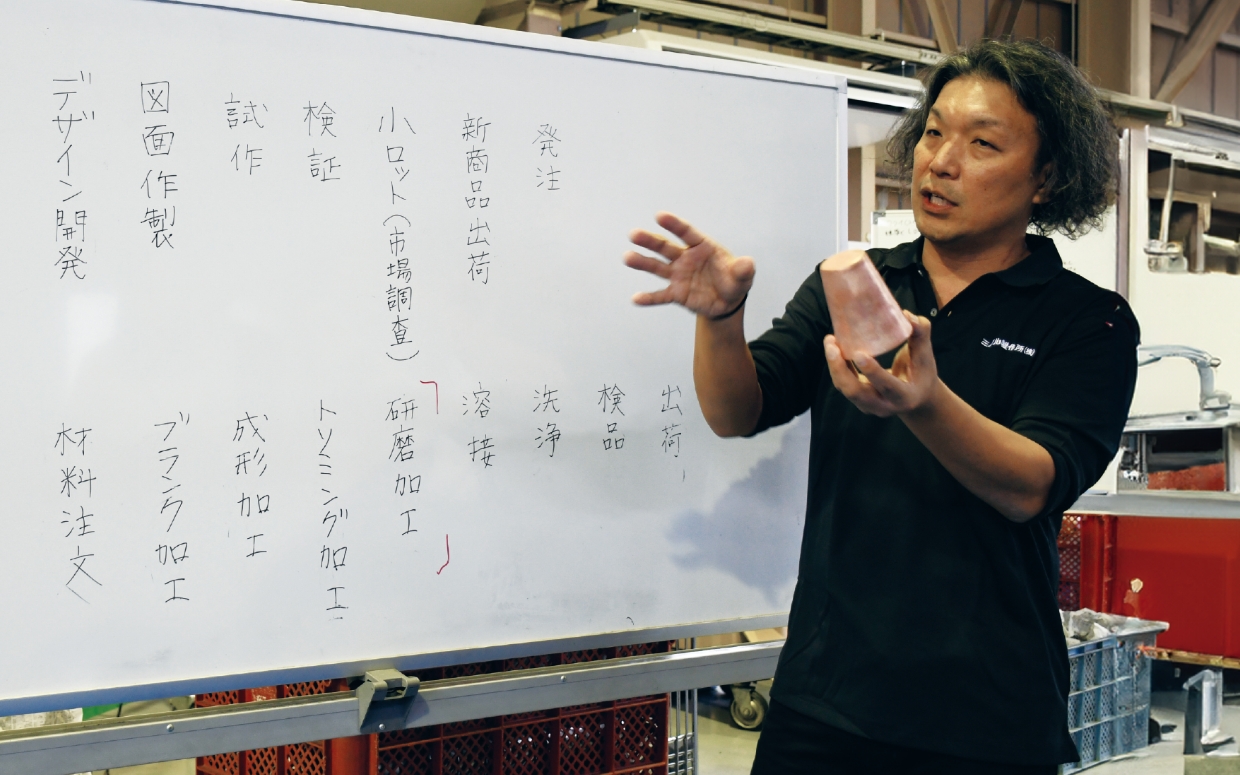 デザイン開発
図面作製
試作
検証
小ロット(市場調査)
新商品出荷
発注
材料注文
ブランク加工
成形加工
トリミング加工
研磨加工
溶接
洗浄
検品
出荷